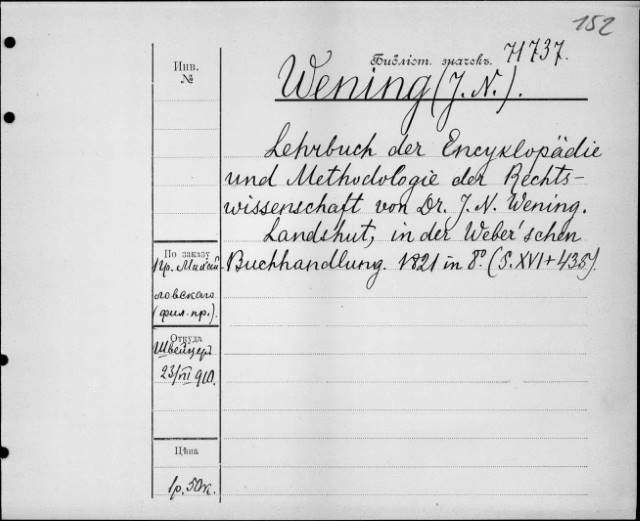 152
Библіот. значекъ. 71737.
Инв.
№
Wening (J. N.).
Lehrbuch der Encyklopädie
und Methodologie der Rechts-
wissenschaft von Dr. J. N. Wening.
Landshut, in der Weber'schen
Buchhandlung. 1821 in 8º. (S. XVI + 438).
По заказу
Пр. Михай-
ловскаго
(фил. пр.).
Откуда
Швейцеръ
23/VI 910.
Цѣна
1р. 50к.